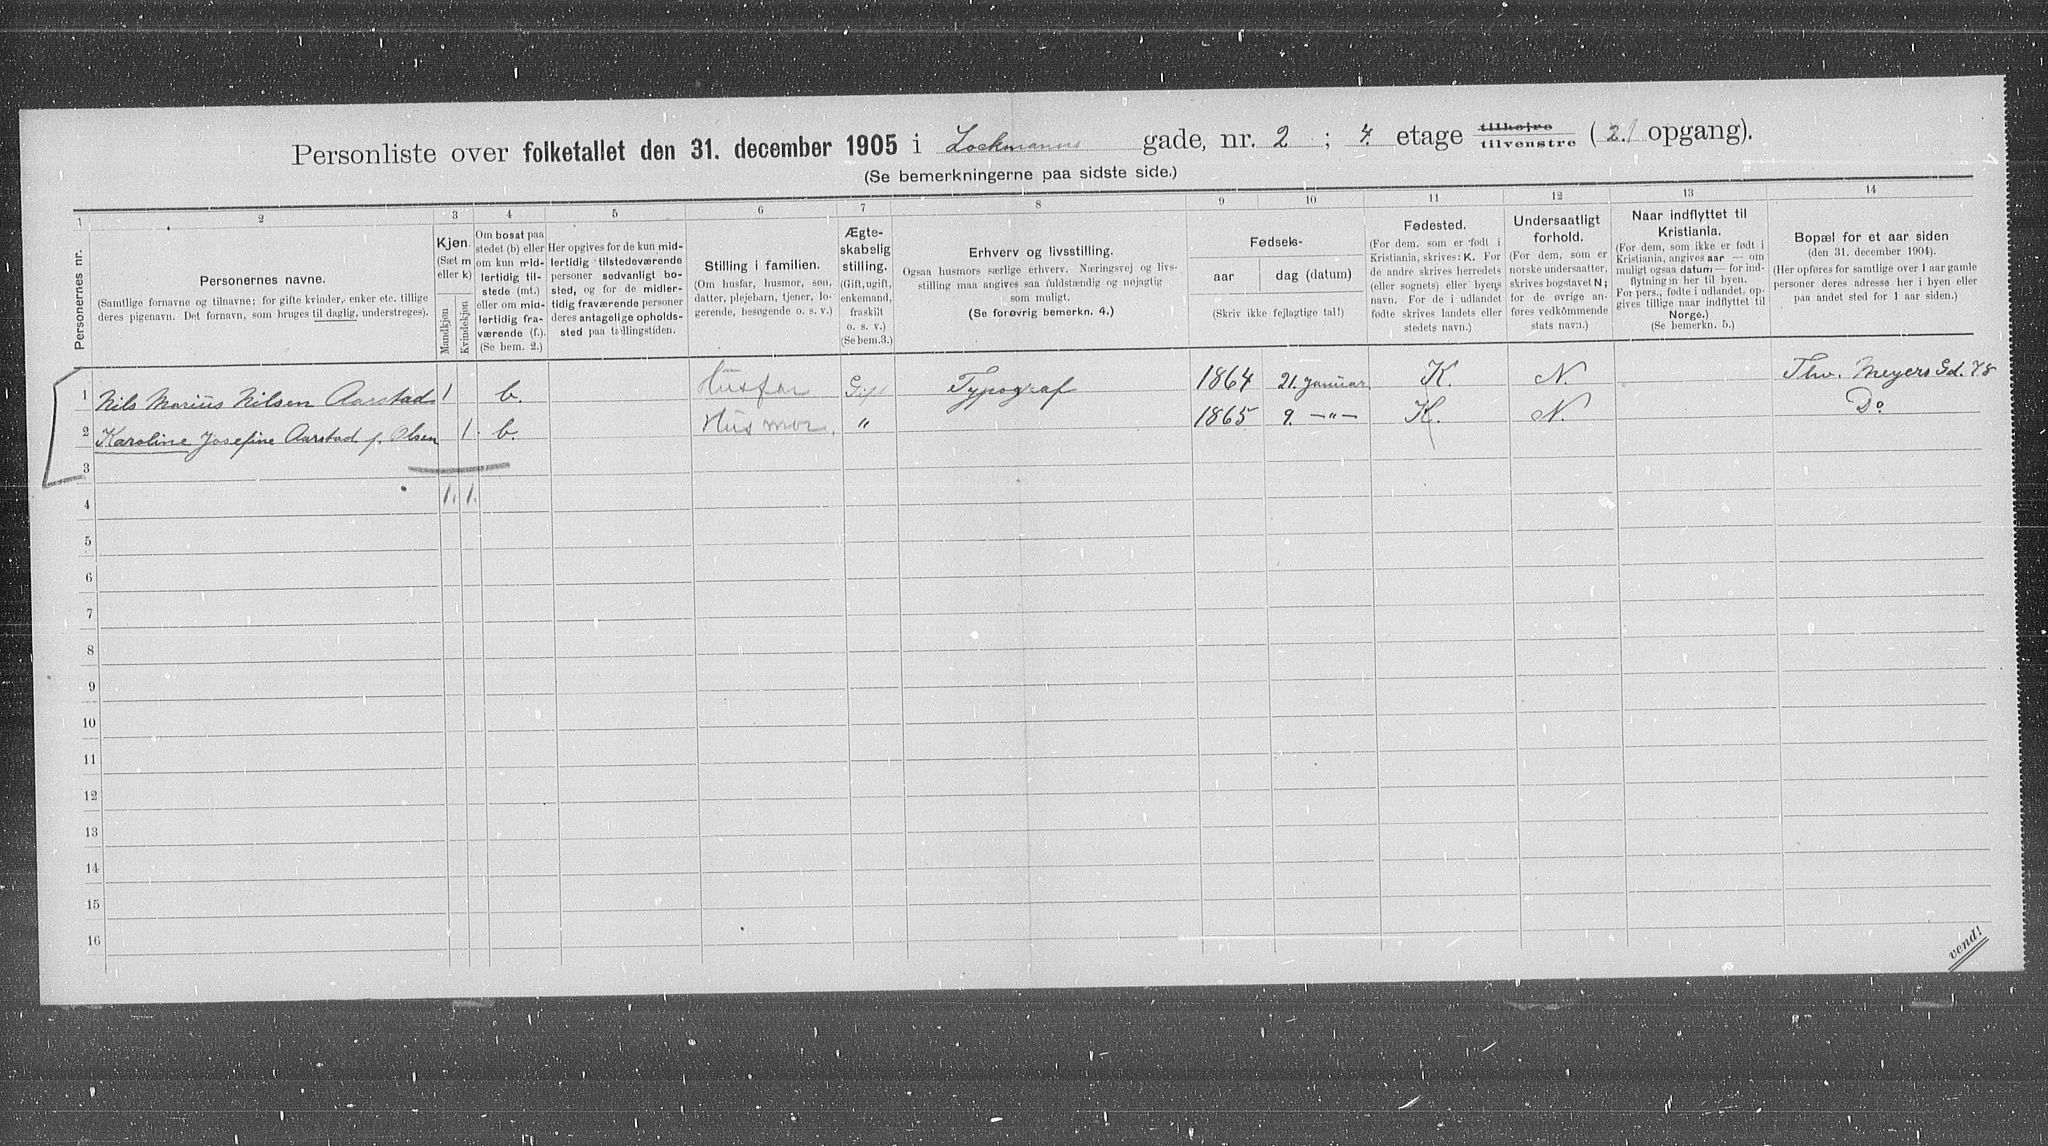 Personliste over folketallet den 31. december 1905 i Lockmanns gade, nr. 2 ; 4. etage tilhøjre tilvenstre (2./ opgang).
(Se bemerkningerne paa sidste side.)
1 2 3 4 5 6 7 8 9 10 11 12 13 14
Personernes nr.
Personernes navne.
(Samtlige fornavne og tilnavne; for gifte kvinder, enker etc. tillige
deres pigenavn. Det fornavn, som bruges til daglig, understreges).
Kjøn.
(Sæt m
eller k)
Mandkjøn
Kvindekjøn
Om bosat paa
stedet (b) eller
om kun mid-
lertidig til-
stede (mt.)
eller om mid-
lertidig fra-
værende (f.).
(Se bem. 2.)
Her opgives for de kun mid-
lertidig tilstedeværende
personer sedvanligt bo-
sted, og for de midler-
tidig fraværende personer
deres antagelige opholds-
sted paa tællingstiden.
Stilling i familien.
(Om husfar, husmor, søn,
datter, plejebarn, tjener, lo-
gerende, besøgende o. s. v.)
Ægte-
skabelig
stilling.
(Gift, ugift,
enkemand,
fraskilt
o. s. v.)
(Se bem. 3.)
Erhverv og livsstilling.
Ogsaa husmors særlige erhverv. Næringsvej og livs-
stilling maa angives saa fuldstændig og nøjagtig
som muligt.
(Se forøvrig bemerkn. 4.)
Fødsels-
aar dag (datum)
(Skriv ikke fejlagtige tal!)
Fødested.
(For dem, som er født i
Kristiania, skrives: K. For
de andre skrives herredets
(eller sognets) eller byens
navn. For de i udlandet
fødte skrives landets eller
stedets navn.)
Undersaatligt
forhold.
(For dem, som er
norske undersaatter,
skrives bogstavet N;
for de øvrige an-
føres vedkommende
stats navn.)
Naar indflyttet til
Kristiania.
(For dem, som ikke er født i
Kristiania, angives aar — om
muligt ogsaa datum — for ind-
flytningen her til byen.
For pers., fødte i udlandet, op-
gives tillige naar indflyttet til
Norge.)
(Se bemerkn. 5.)
Bopæl for et aar siden
(den 31. december 1904).
(Her opføres for samtlige over 1 aar gamle
personer deres adresse her i byen eller
paa andet sted for 1 aar siden.)
1 Nils Marius Nilsen Aarstad 1 b. Husfar Gift Typograf 1864 21. januar K. N. Thv. Meyers Gd. 48
2 Karoline Josefine Aarstad f. Olsen 1. b. Husmor " 1865 9. —"— K. N. Do
3
4 1. 1.
5
6
7
8
9
10
11
12
13
14
15
16
vend!